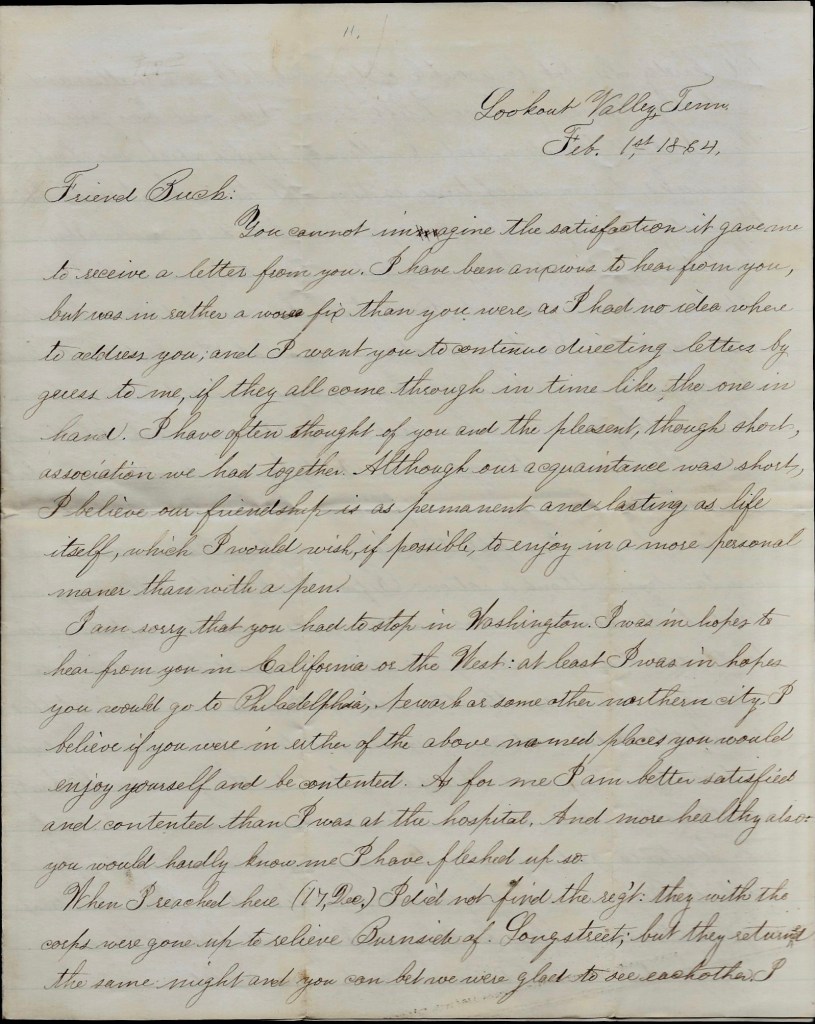 11.
Lookout Valley, Tenn.
Feb. 1st, 1864.
Friend Buck:
You cannot imagine the satisfaction it gave me
to receive a letter from you. I have been anxious to hear from you,
but was in rather a worse fix than you were, as I had no idea where
to address you; and I want you to continue directing letters by
guess to me, if they all come through in time like the one in
hand. I have often thought of you and the pleasent, though short,
association we had together. Although our acquaintance was short,
I believe our friendship is as permanent and lasting as life
itself, which I would wish, if possible, to enjoy in a more personal
maner than with a pen.
I am sorry that you had to stop in Washington. I was in hopes to
hear from you in California or the West: at least I was in hopes
you would go to Philadelphia, Newark or some other northern city. I
believe if you were in either of the above named places you would
enjoy yourself and be contented. As for me I am better satisfied
and contented than I was at the hospital. And more healthy also-
you would hardly know me I have fleshed up so.
When I reached here (17, Dec,) I did not find the reg't: they with the
corps were gone up to relieve Burnside of Longstreet; but they returned
the same night and you can bet we were glad to see eachother. I